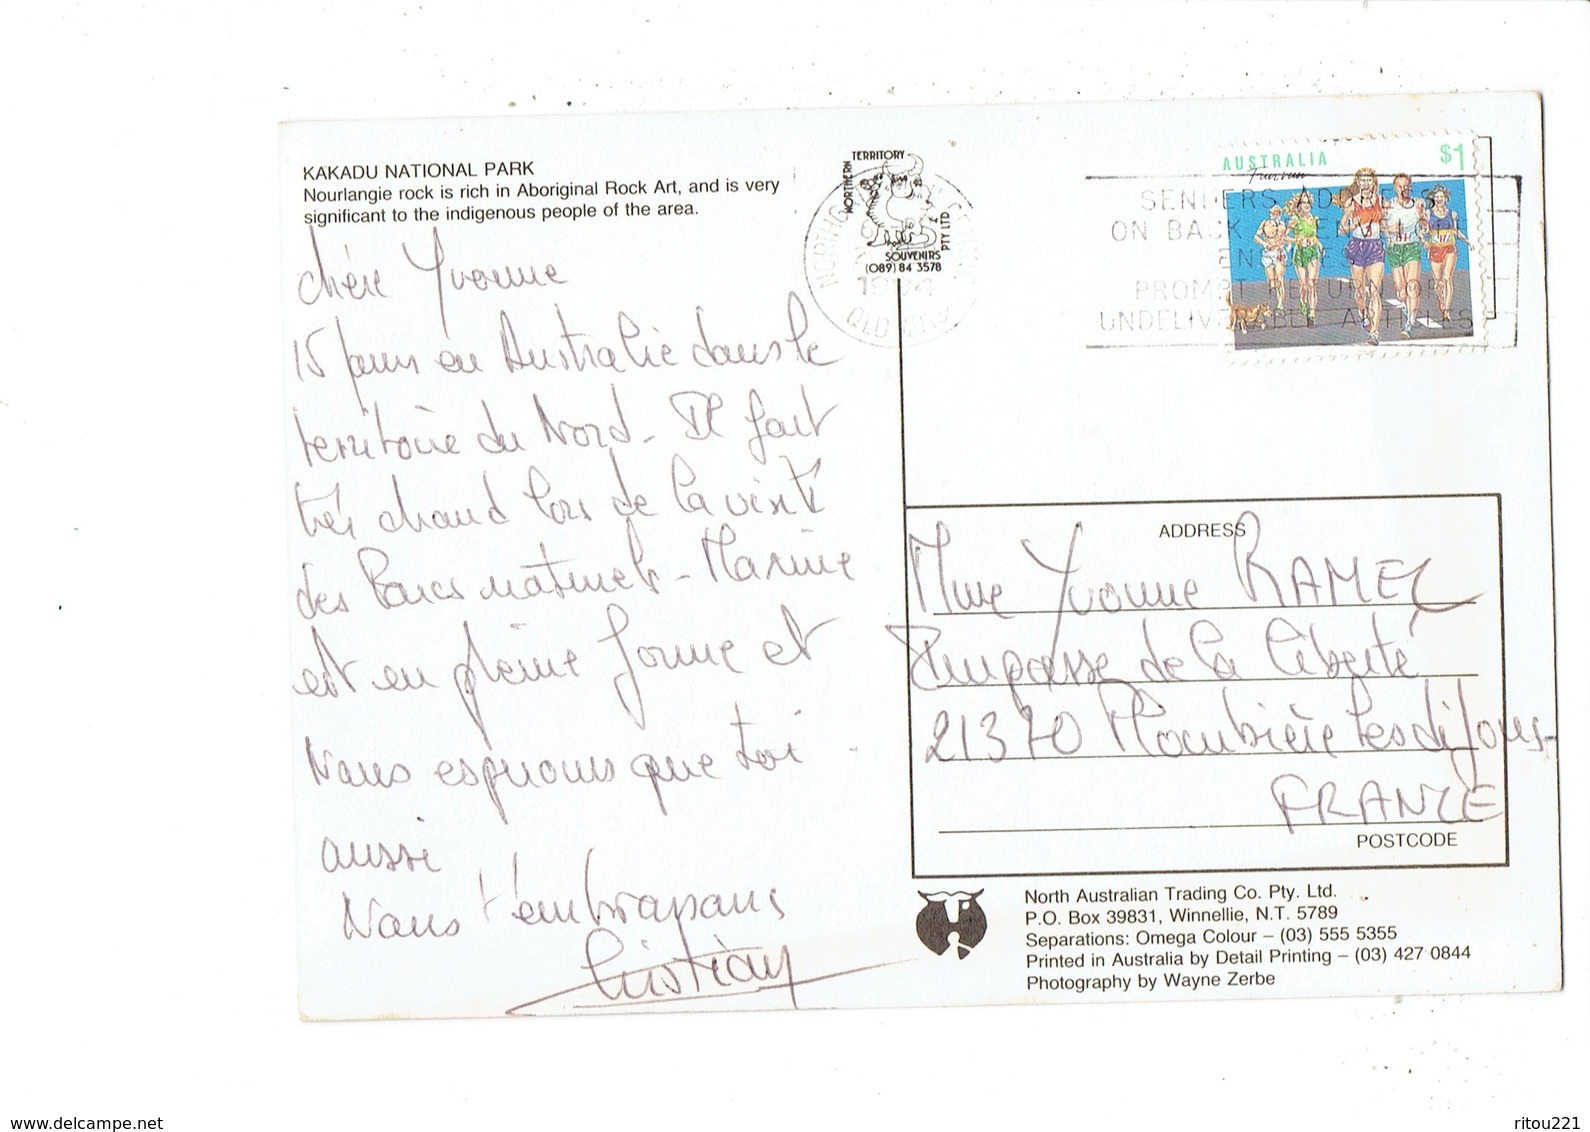 KAKADU NATIONAL PARK
Nourlangie rock is rich in Aboriginal Rock Art, and is very
significant to the indigenous people of the area.
chère Yvonne
15 jours en Australie dans le
territoire du Nord - Il fait
très chaud lors de la visite
des Parcs naturels - Marine
est en pleine forme et
Nous esperons que toi
aussi
Nous t'embrassons
Christian
NORTHERN TERRITORY
SOUVENIRS PTY LTD
(089) 84 3578
QLD
AUSTRALIA $1
Fun run
SENDERS ADDRESS
ON BACK OF ENVELOPE
ENSURES
PROMPT RETURN OF
UNDELIVERABLE ARTICLES
ADDRESS
Mme Yvonne RAMEL
Impasse de la liberté
21370 Plombière les dijons
FRANCE
POSTCODE
North Australian Trading Co. Pty. Ltd.
P.O. Box 39831, Winnellie, N.T. 5789
Separations: Omega Colour – (03) 555 5355
Printed in Australia by Detail Printing – (03) 427 0844
Photography by Wayne Zerbe
www.delcampe.net
ritou221